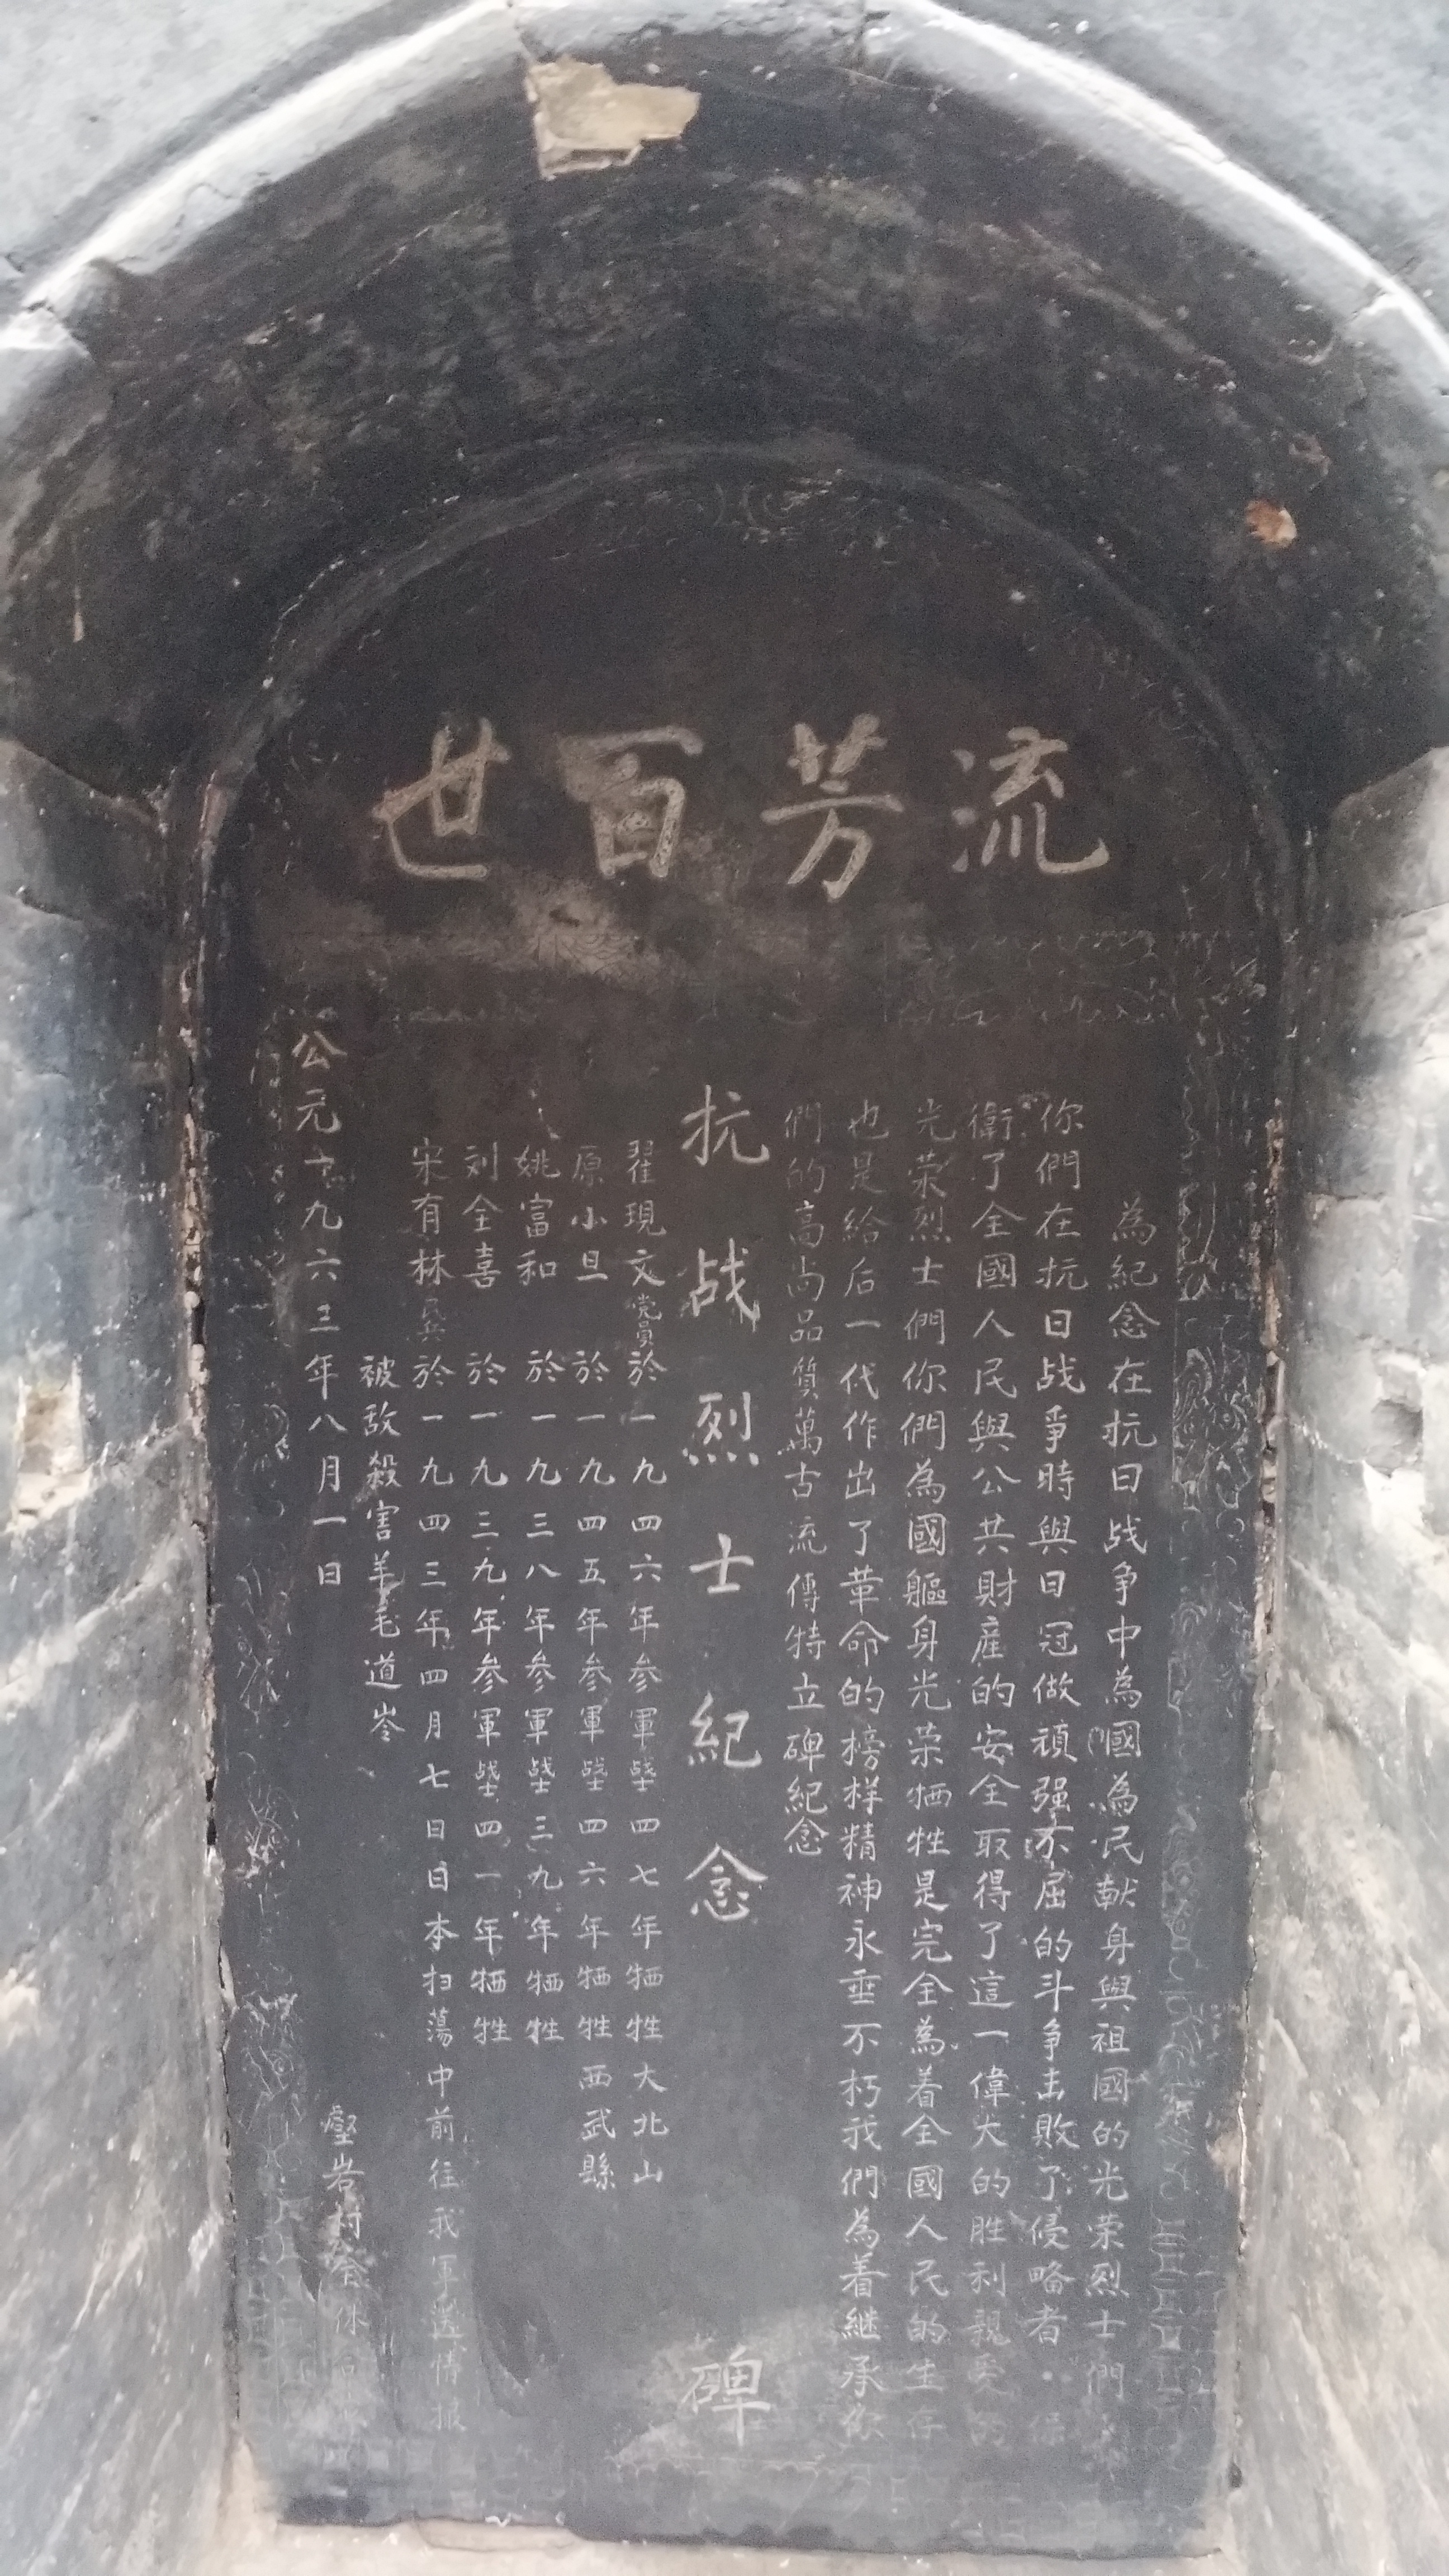 流芳百世
為紀念在抗日战争中為國為民献身與祖國的光荣烈士們
你們在抗日战爭時與日冠做頑强不屈的斗争击敗了侵略者保
衛了全國人民與公共財産的安全取得了這一偉大的胜利親爱的
光荣烈士們你們為國軀身光荣牺牲是完全為着全國人民的生存
也是給后一代作出了革命的榜样精神永垂不朽我們為着継承你
們的高尚品質萬古流傳特立碑紀念
抗战烈士紀念碑
翟現文党員於一九四六年参軍犧四七年牺牲大北山
原小旦於一九四五年参軍四六年牺牲西武縣
姚富和於一九三八年参軍三九年牺牲
刘全喜於一九三九年参軍四一年牺牲
宋有林民兵於一九四三年四月七日日本扫蕩中前往我軍送情报
被敌殺害羊毛道岺
公元一九六三年八月一日
壑岩村全体